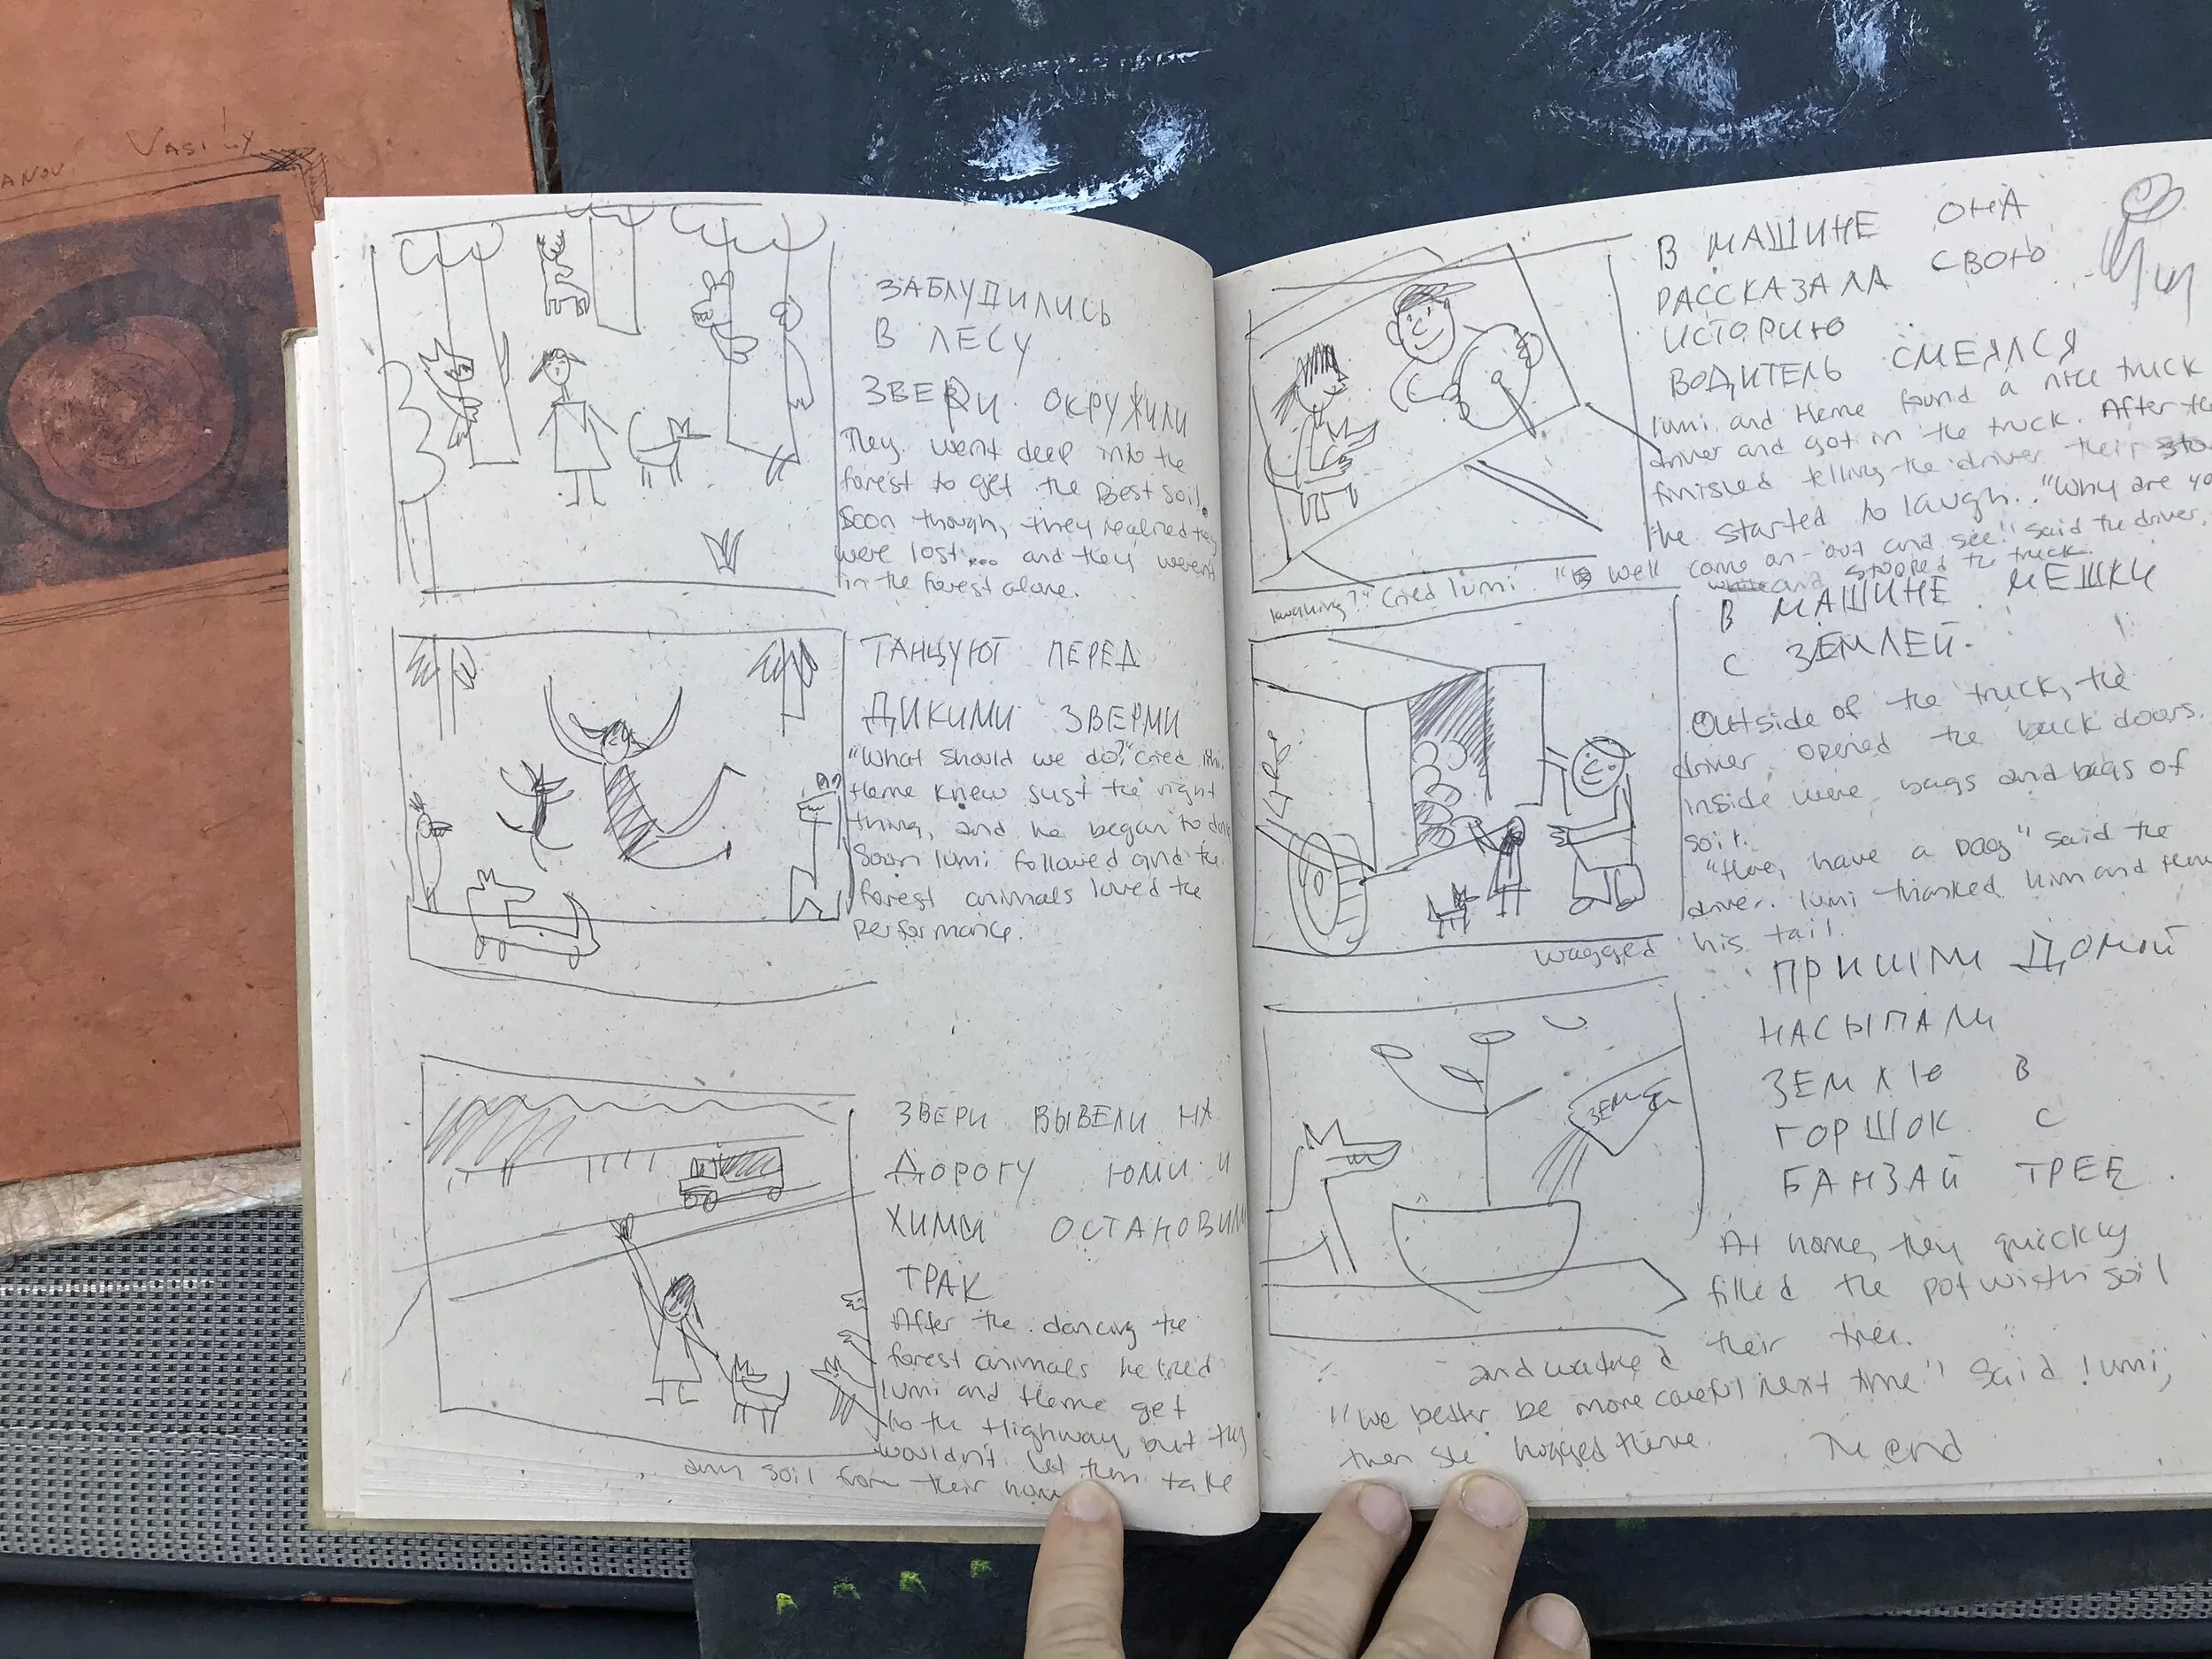 ANOV VASILY
ЗАБЛУДИЛИСЬ
В ЛЕСУ
ЗВЕРИ ОКРУЖИЛИ
They went deep into the
forest to get the Best soil.
Soon though, they realized they
were lost... and they weren't
in the forest alone.
ТАНЦУЮТ ПЕРЕД
ДИКИМИ ЗВЕРМИ
"What should we do?" cried
Heme knew just the right
thing, and he began to
Soon lumi followed and the
forest animals loved the
performance.
ЗВЕРИ ВЫВЕЛИ НА
ДОРОГУ ЮМИ И
ХИМИ ОСТАНОВИЛИ
ТРАК
After the dancing the
forest animals helped
lumi and Heme get
to the Highway, but they
wouldn't let them take
any soil from their
В МАШИНЕ ОНА
РАССКАЗАЛА СВОЮ
ИСТОРИЮ
ВОДИТЕЛЬ СМЕЯЛСЯ
lumi and Heme found a nice truck
driver and got in the truck. After
finished telling the driver their
he started to laugh.. "Why are
laughing?" cried lumi. "well come on out and see!" said the driver,
and stopped the truck.
В МАШИНЕ МЕШКИ
С ЗЕМЛЕЙ.
Outside of the truck, the
driver opened the back doors.
inside were bags and bags of
soil.
"Here, have a bag" said the
driver. lumi thanked him and
wagged his tail.
ПРИШЛИ ДОМОЙ
НАСЫПАЛИ
ЗЕМЛЮ В
ГОРШОК С
БАНЗАЙ ТРЕЕ.
At home, they quickly
filled the pot with soil
and watered their tree.
"we better be more careful next time" said lumi,
then she hugged Heme.
The end